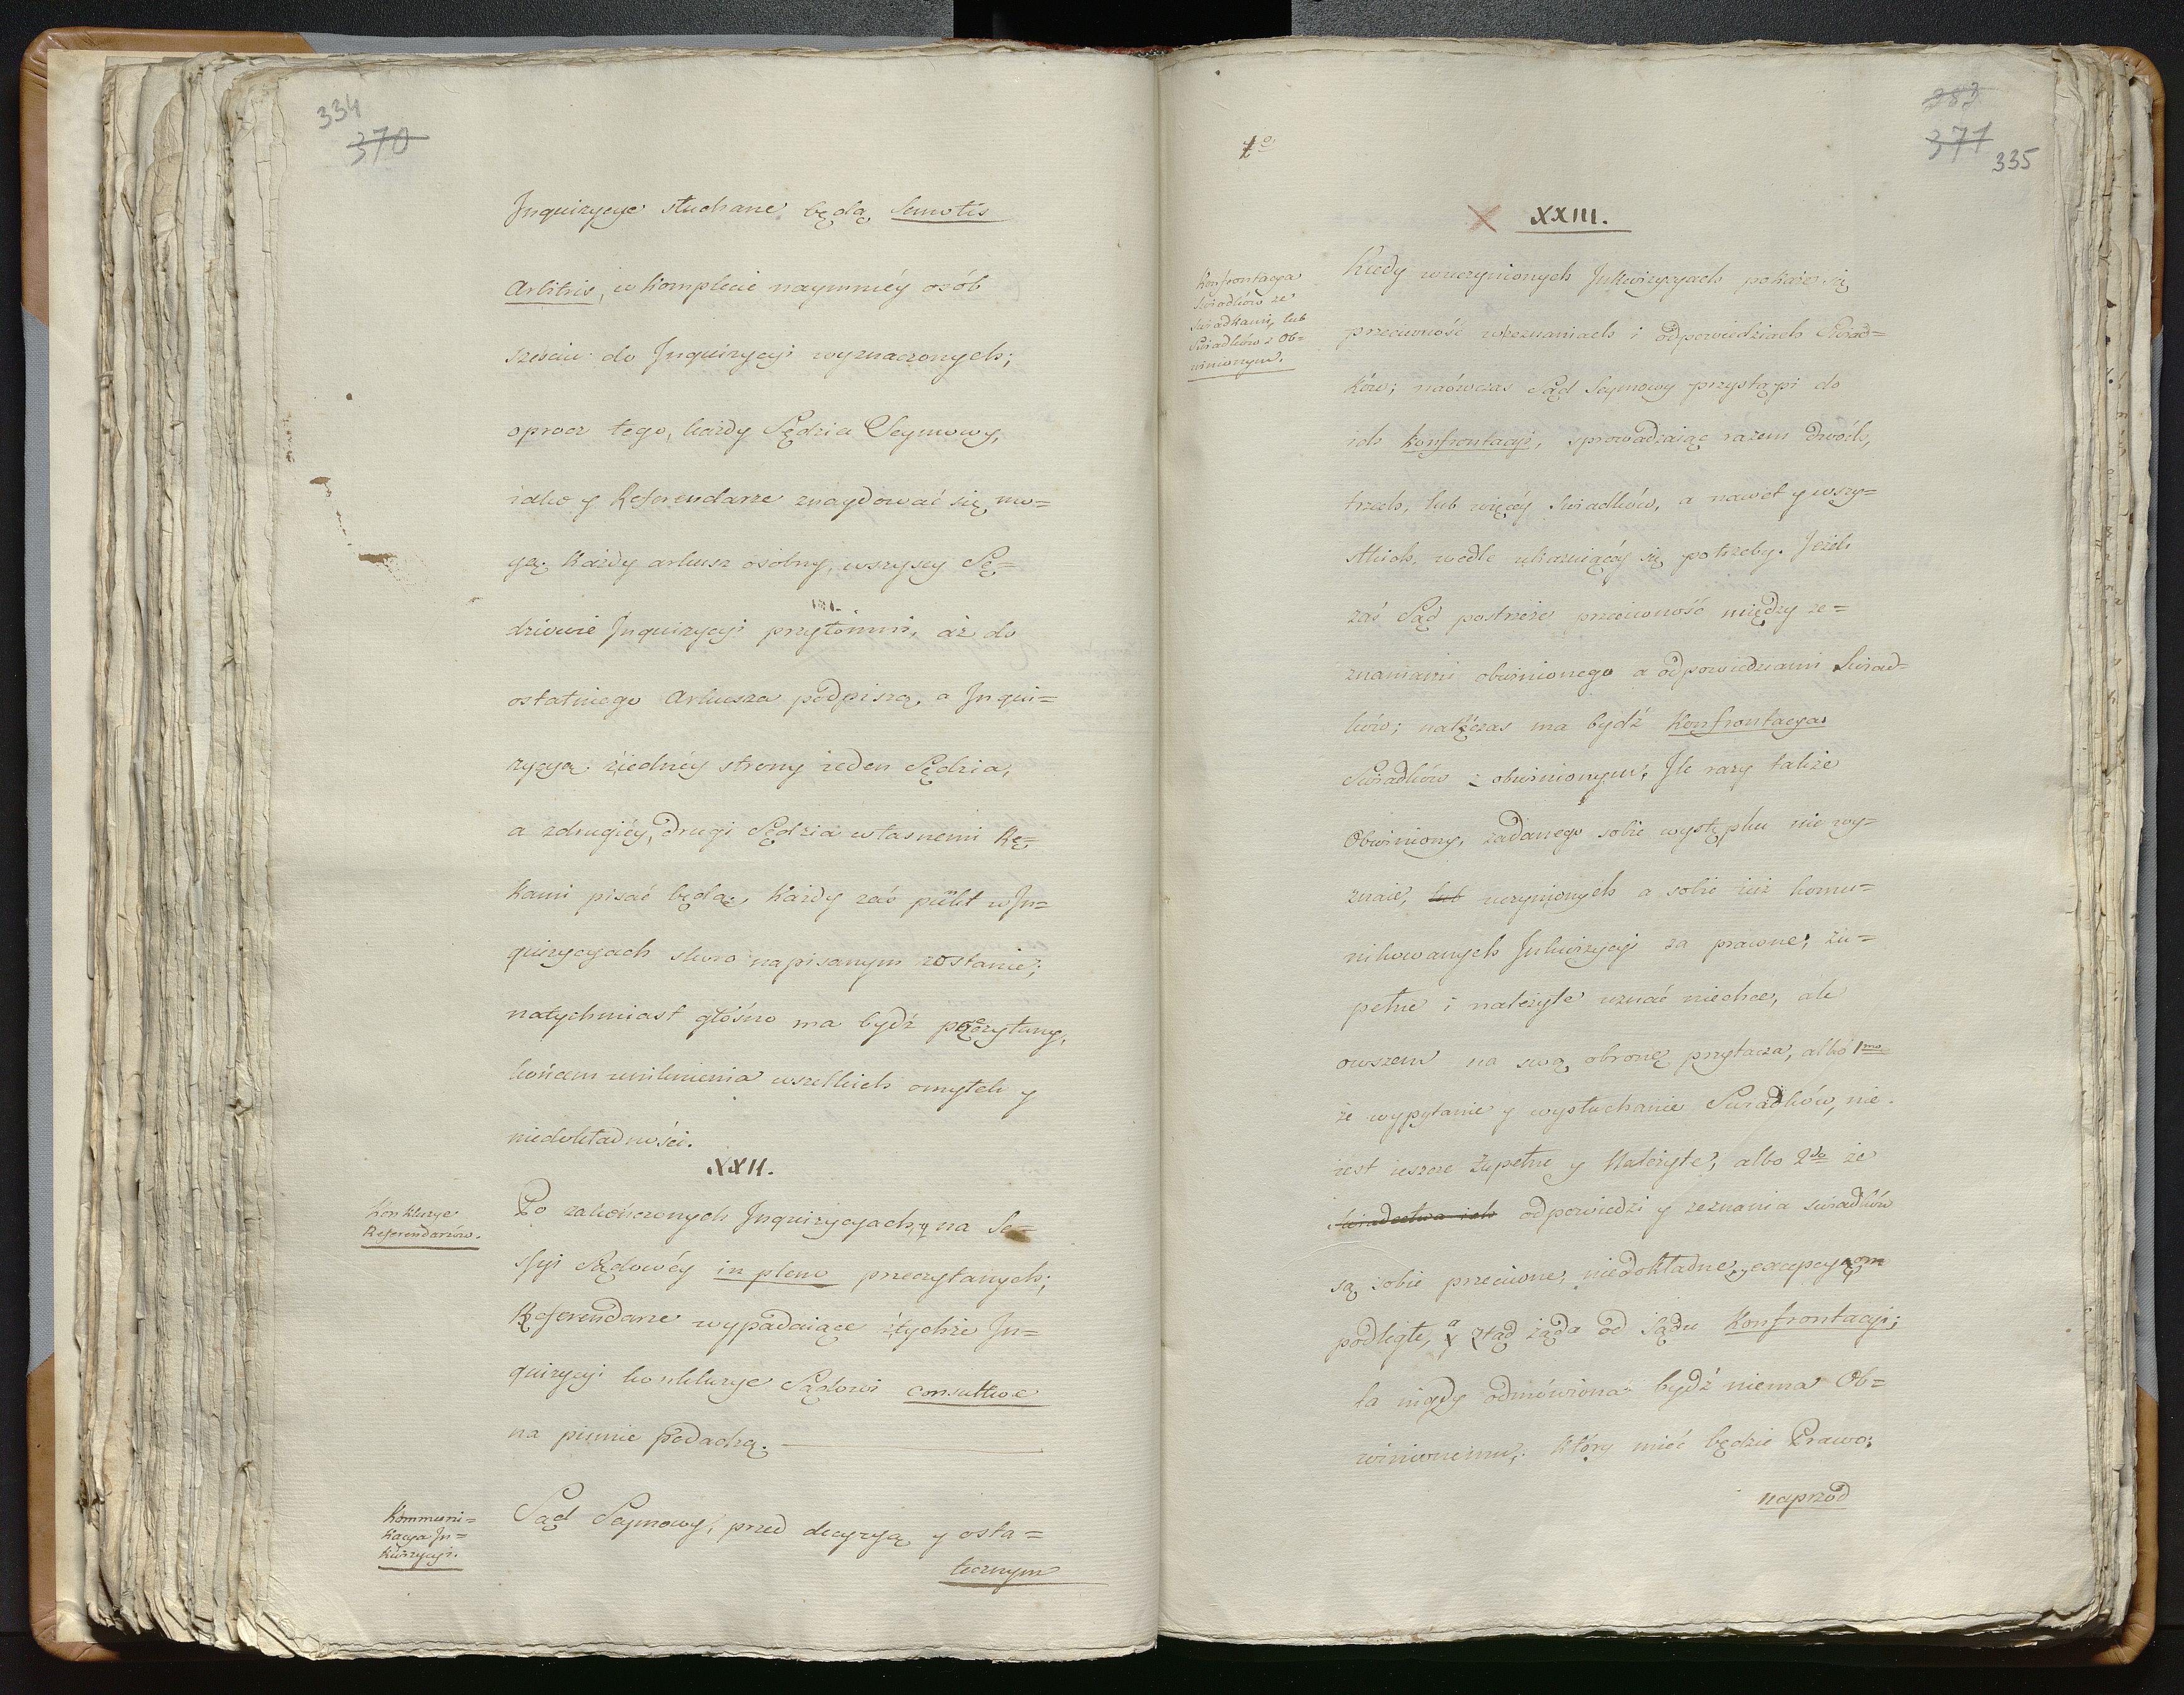 334
370
Inquizycye słuchane będą Semotis
Arbitris, w komplecie naymniéy osób
sześciu do Inquizycyi wyznaczonych;
oprocz tego, każdy Sędzia Seymowy,
iako y Referendarze znaydować się mo=
gą. Każdy arkusz osobny, wszyscy Sę=
dziowie Inquizycyi przytomni, aż do
ostatniego Arkusza podpiszą, a Inqui=
zycyą ziednéy strony ieden Sędzia,
a zdrugiéy, drugi Sędzia własnemi Rę=
kami pisać będą, Każdy zaś punkt w In=
quizycyach skoro napisanym zostanie;
natychmiast głośno ma bydź przeczytany,
końcem uniknienia wszelkich omyłek y
niedokładności.
XXII.
Konkluzye
Referendarzów.
Po zakończonych Inquizycyach, y na Se=
ssyi Sądowéy in pleno przeczytanych;
Referendarze wypadaiące ztychże In=
quizycyi konkluzye Sądowi consultive
na piśmie podadzą.
Kommuni=
kacya In=
kwizycyi.
Sąd Seymowy, przed decyzyą y osta=
tecznym
1º
383
371
335
XXIII.
Konfrontacya
Swiadków ze
Swiadkami, lub
Swiadków z Ob=
winionym.
Kiedy wuczynionych Inkwizycyach pokaże się
przeciwność wzeznaniach i odpowiedziach Swiad=
ków; naówczas Sąd Seymowy przystąpi do
ich konfrontacyi, sprowadzaiąc razem dwóch,
trzech, lub więcéy Swiadków, a nawet y wszy=
stkich, wedle ukazuiącéy się potrzeby. Jeżeli
zaś Sąd postrzeże przeciwność między ze=
znaniami obwinionego a odpowiedziami Swiad=
ków; natęczas ma bydź Konfrontacya
Swiadków z obwinionym, Ile razy także
Obwiniony, zadanego sobie występku nie wy=
znaie, lub uczynionych a sobie iuż komu=
nikowanych Inkwizycyi za prawne, zu=
pełne i należyte uznać niechce, ale
owszem na swą obronę przytacza, albo 1mo
że wypytanie y wysłuchanie Swiadków, nie
iest ieszcze Zupełne y Należyte, albo 2do że
swiadectwa ich odpowiedzi y zeznania swiadków
są sobie przeciwne, niedokładne, y excepcyom
podległe, a ztąd żąda od Sądu Konfrontacyi;
ta nigdy odmówiona bydź niema Ob=
winionemu, który mieć będzie Prawo;
naprzód